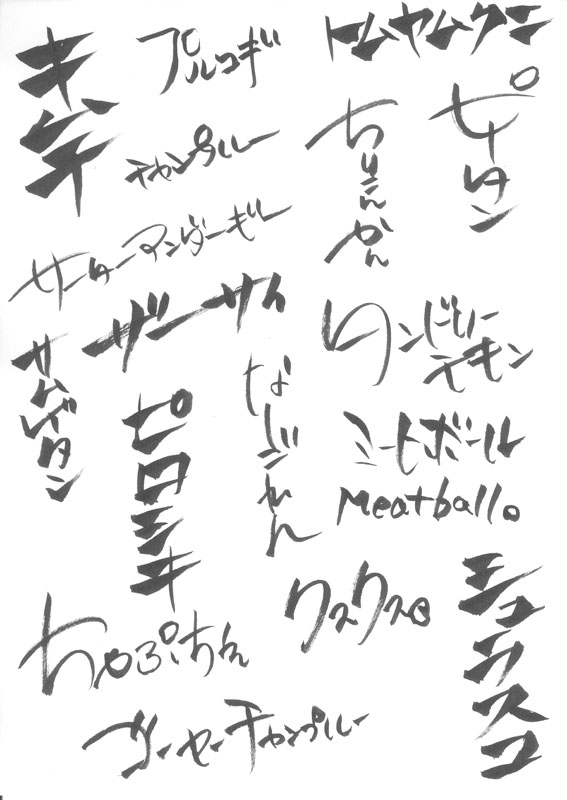 キムチ
プルコギ
トムヤムクン
チャンプルー
ちりこんかん
ピータン
サーターアンダーギー
ザーサイ
サムゲタン
ピロシキ
なしごれん
タンドリー
チキン
ミートボール
Meatball。
ちゃぷちぇ
クスクス
シュラスコ
ゴーヤーチャンプルー